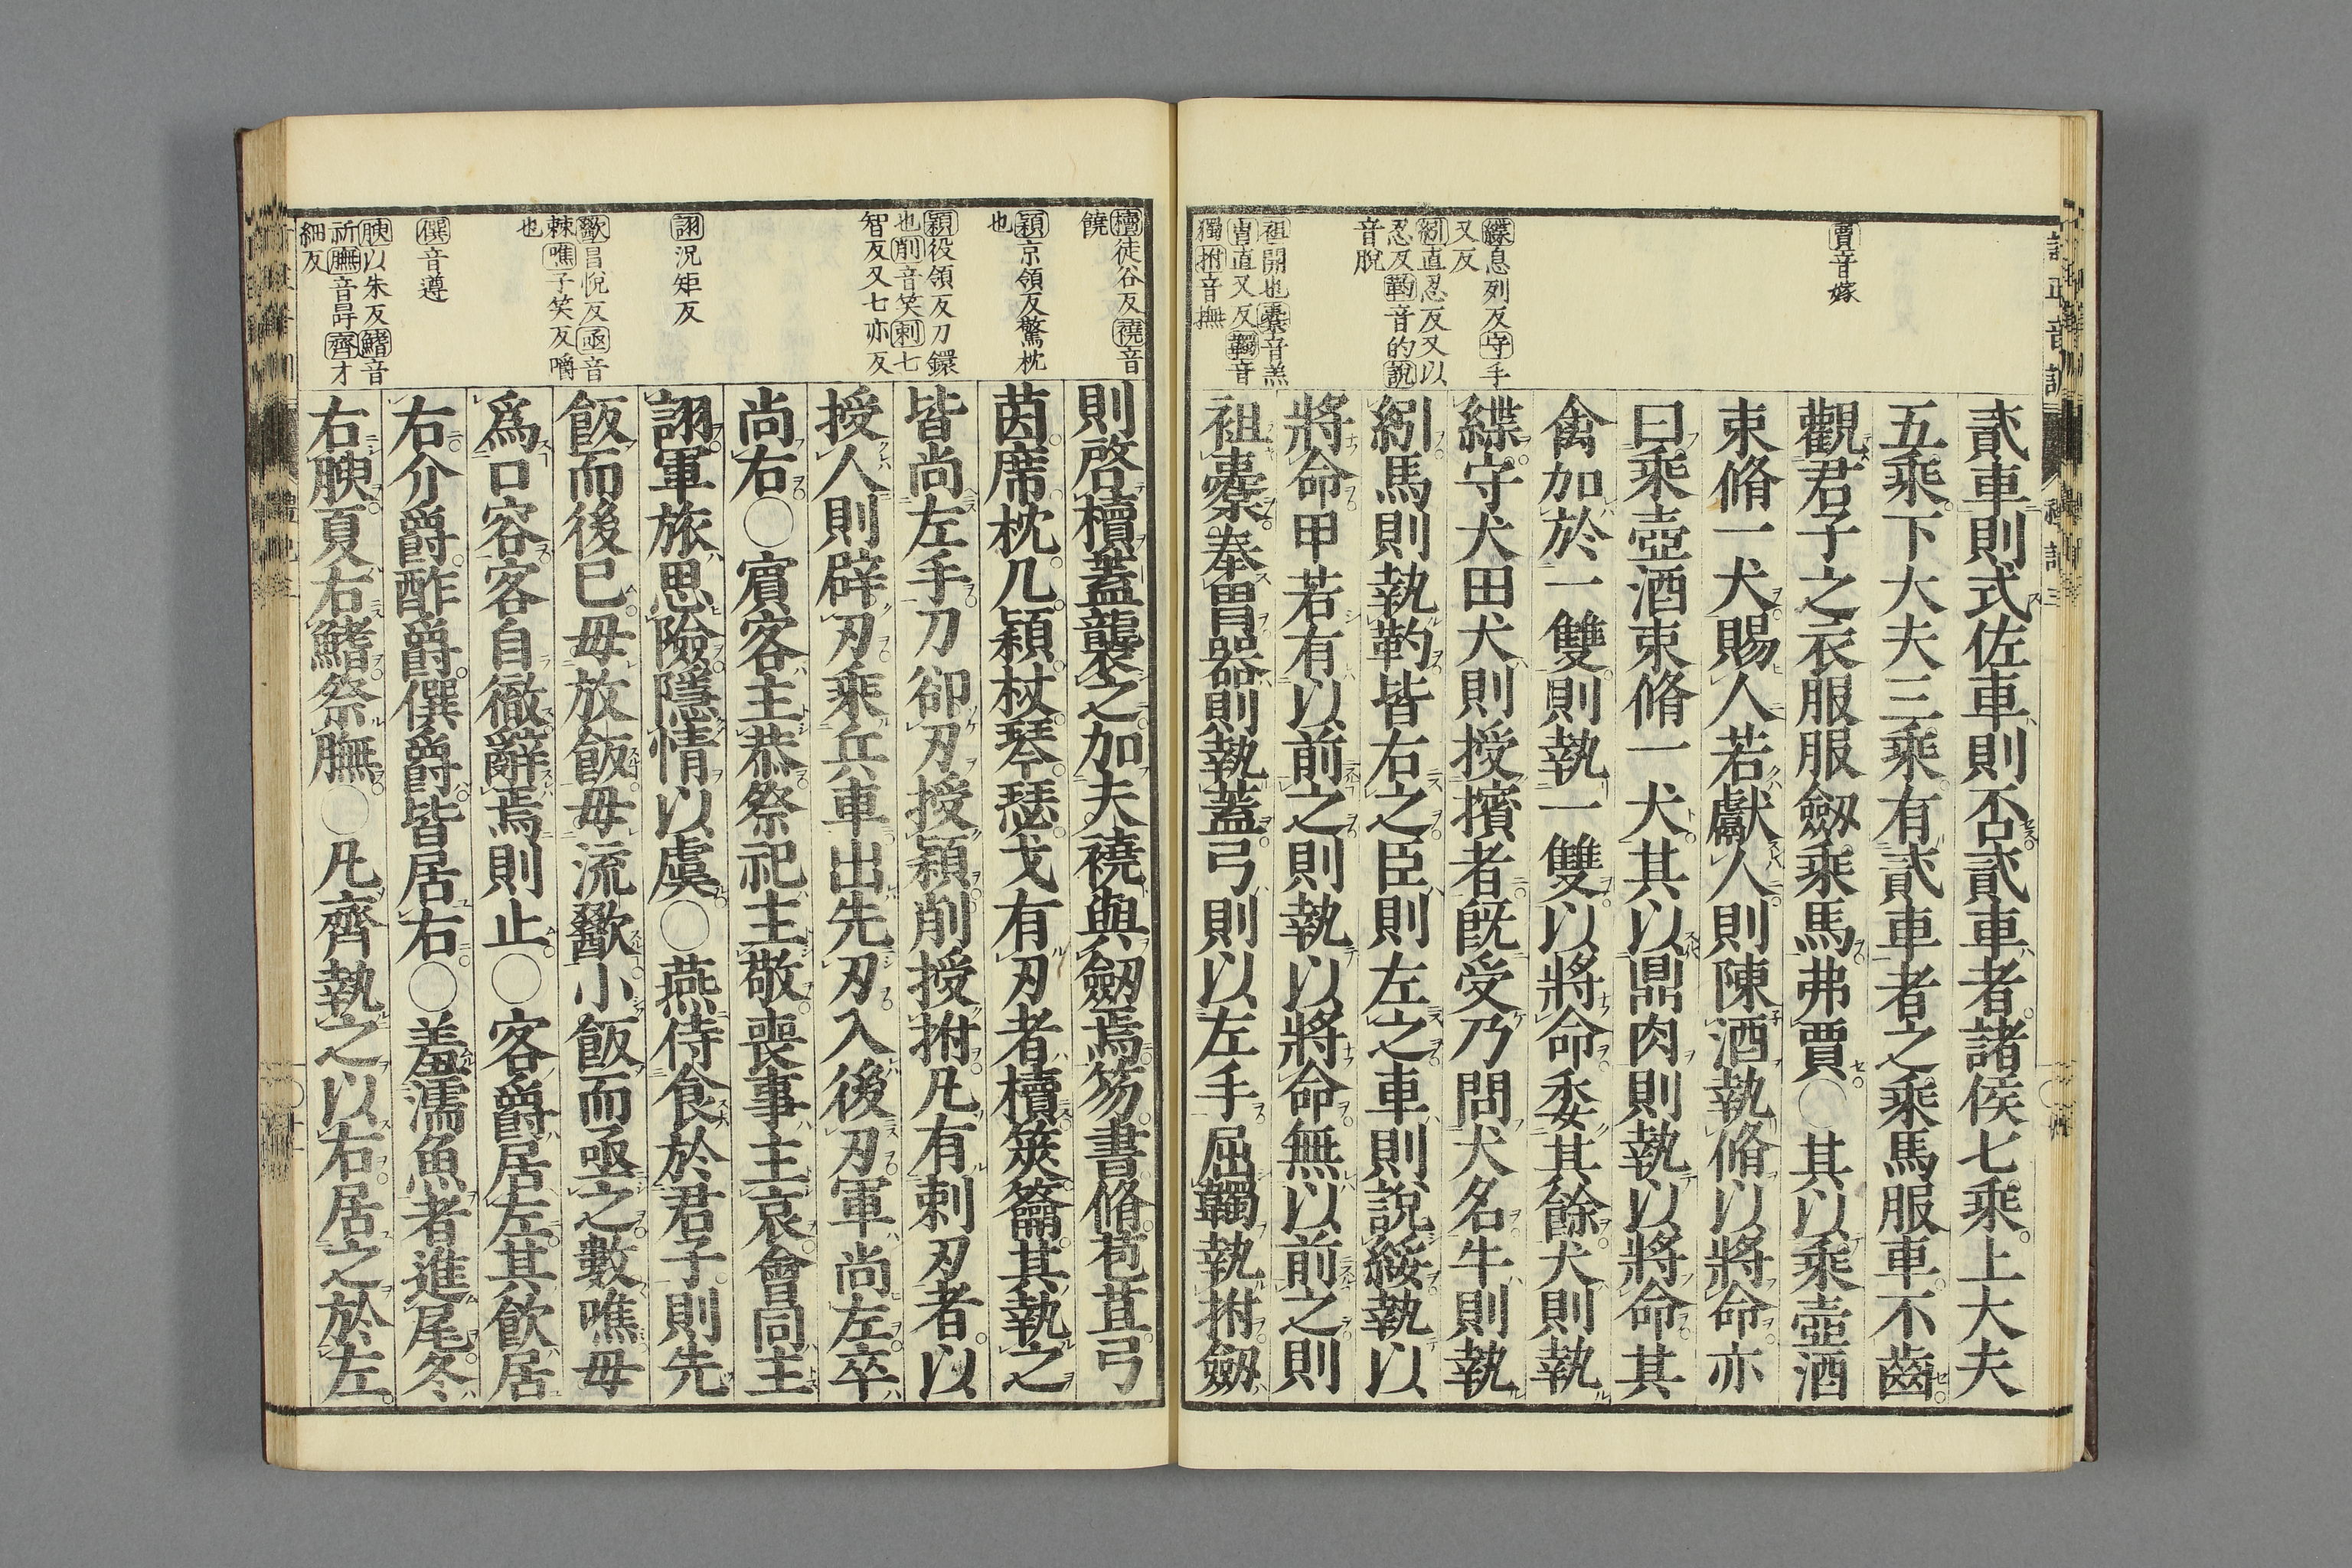 賈音嫁
緤息列反守手
又反
紖直忍反又以
忍反靮音的說
音脫
袒開也櫜音羔
冑直又反韣音
獨拊音撫
貳車則式佐車則否貳車者諸侯七乘上大夫
五乘下大夫三乘有貳車者之乘馬服車不齒
觀君子之衣服服劔乘馬弗賈〇其以乘壺酒
束脩一犬賜人若獻人則陳酒執脩以將命亦
曰乘壺酒束脩一犬其以鼎肉則執以將命其
禽加於一雙則執一雙以將命委其餘犬則執
緤守犬田犬則授擯者旣受乃問犬名牛則執
紖馬則執靮皆右之臣則左之車則說綏執以
將命甲若有以前之則執以將命無以前之則
袒櫜奉冑器則執蓋弓則以左手屈韣執拊劔
櫝徒谷反襓音
饒
熲京領反驚枕
也
穎役領反刀鐶
也削音笑刺七
智反又七亦反
詡況矩反
歠昌悅反亟音
棘噍子笑反嚼
也
僎音遵
腴以朱反鰭音
祈膴音冔齊才
細反
則啓櫝蓋襲之加夫襓與劔焉笏書脩苞苴弓
茵席枕几熲杖琴瑟戈有刃者櫝筴籥其執之
皆尚左手刀卻刃授穎削授拊凡有刺刃者以
授人則辟刃乘兵車出先刃入後刃軍尚左卒
尚右〇賓客主恭祭祀主敬喪事主哀會同主
詡軍旅思險隱情以虞〇燕侍食於君子則先
飯而後已毋放飯毋流歠小飯而亟之數噍毋
爲口容客自徹辭焉則止〇客爵居左其飮居
右介爵酢爵僎爵皆居右〇羞濡魚者進尾冬
右腴夏右鰭祭膴〇凡齊執之以右居之於左